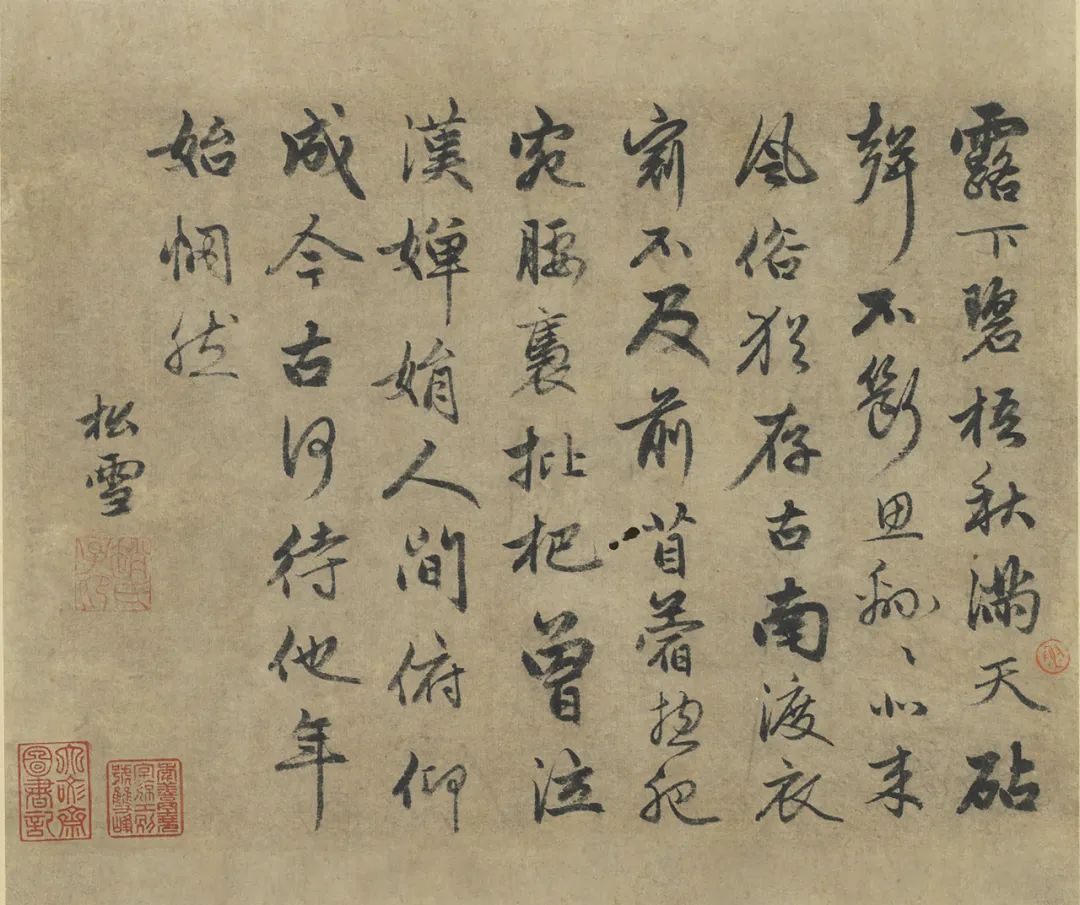 露下碧梧秋滿天砧
聲不斷思綿〻北来
風俗猶存古南渡衣
冠不及前苜蓿捴肥
宛腰褭批把曾泣
漢嬋娟人間俯仰
成今古何待他年
始惘然
松雪